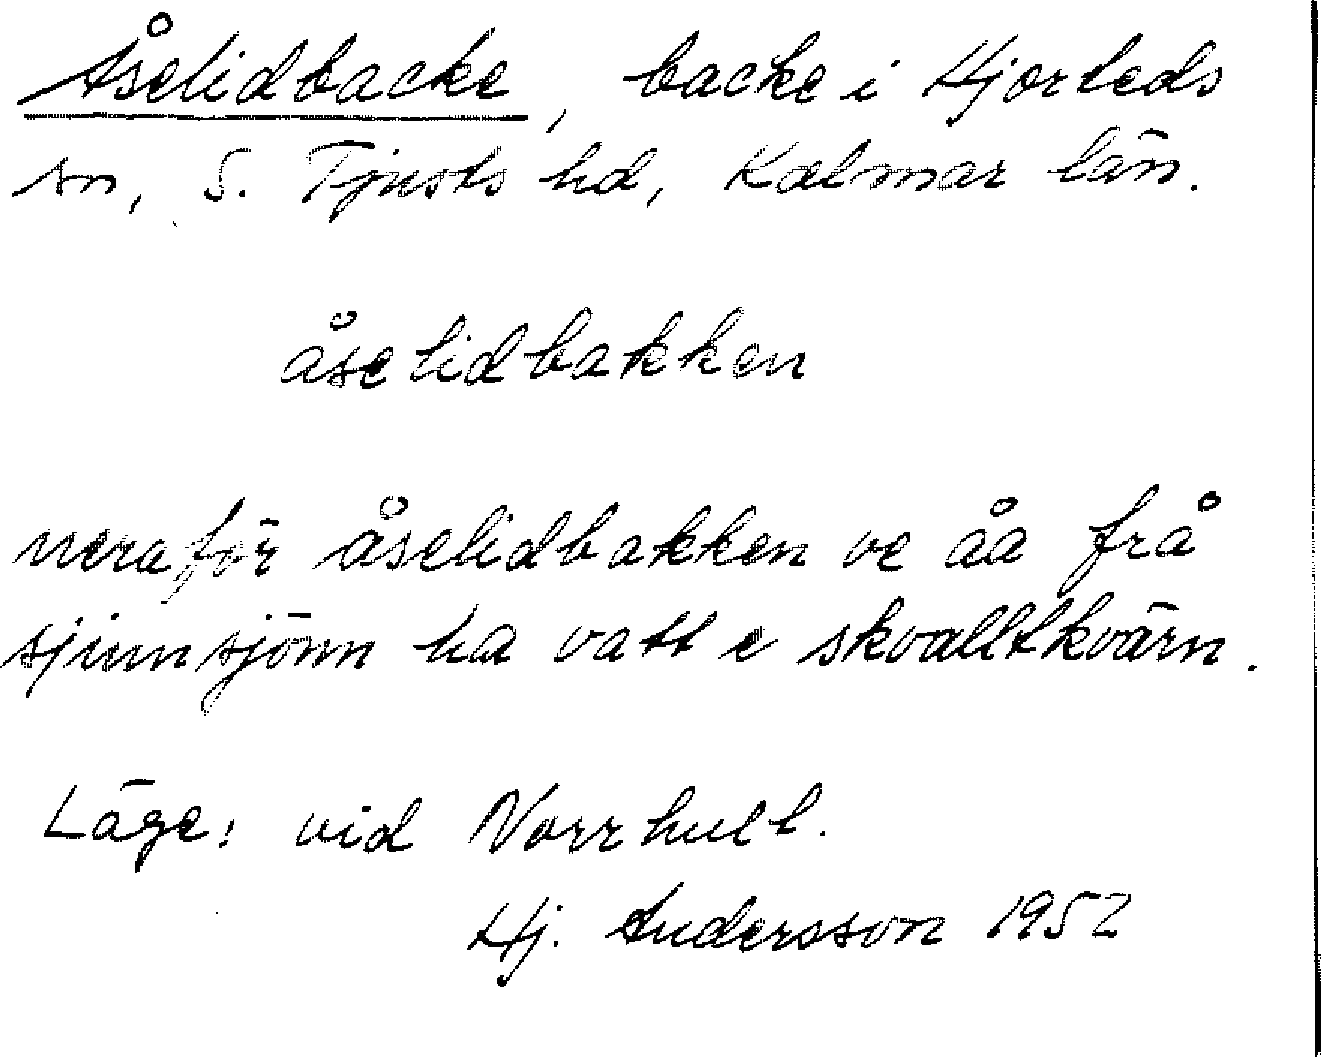 Åselidbacke, backe i Hjorteds
sn, S. Tjusts hd, Kalmar län.
åselidbakken
neraför åselidbakken ve åa frå
sjunnsjönn ha vatt e skvalltkvärn.
Läge: vid Norrhult.
Hj. Andersson 1952